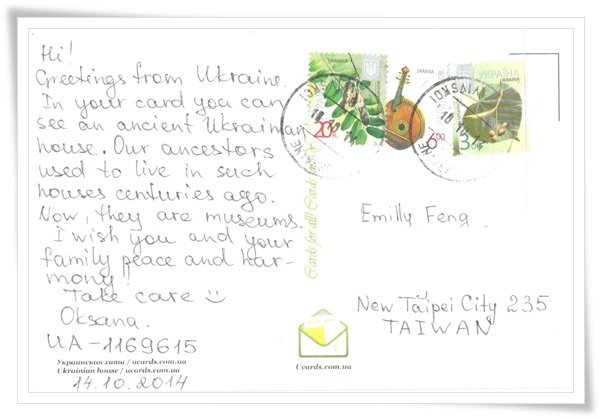 Hi!
Greetings from Ukraine.
In your card you can
see an ancient Ukrainian
house. Our ancestors
used to live in such
houses centuries ago.
Now, they are museums.
I wish you and your
family peace and har-
mony!
Take care
Oksana.
UA-1169615
Украинская хата / ucards.com.ua
Ukrainian house / ucards.com.ua
14.10.2014
Cards for all! Cards for
Ucards.com.ua
UKRAINE
УКРАЇНА
UKRAINE
6,00
УКРАЇНА
UKRAINE
Emilly Feng
New Taipei City 235
TAIWAN